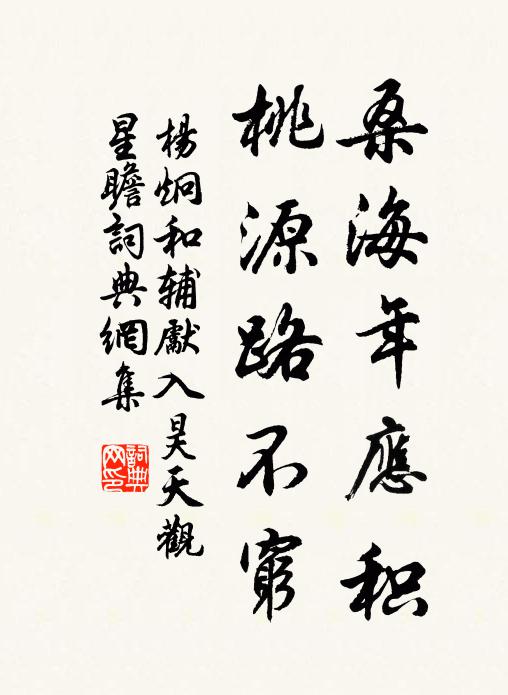 桑海年應积
桃源路不窮
楊炯和辅獻入昊天觀
星瞻詞典網集
詞典
网印